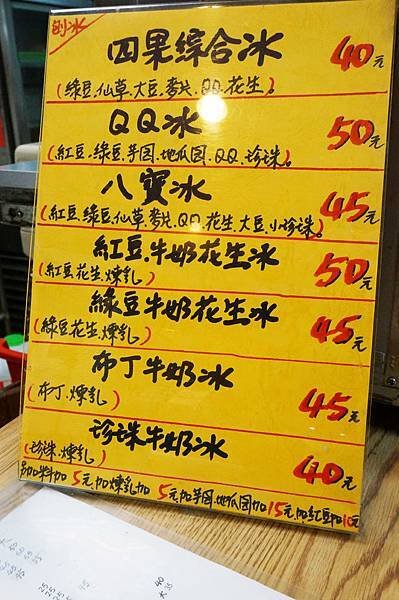 刨冰
四果綜合冰 40元
(綠豆.仙草.大豆.麥片.QQ.花生。)
QQ冰 50元
(紅豆.綠豆.芋圓.地瓜圓.QQ.珍珠)。
八寶冰 45元
(紅豆.綠豆.仙草.麥片.QQ.花生.大豆.小珍珠。
紅豆.牛奶花生冰 50元
(紅豆.花生.煉乳)
綠豆牛奶花生冰 45元
(綠豆花生.煉乳)
布丁牛奶冰 45元
(布丁.煉乳)
珍珠牛奶冰 40元
(珍珠.煉乳)
另加料加5元.加煉乳加5元.加芋圓.地瓜圓加15元.加紅豆加10元